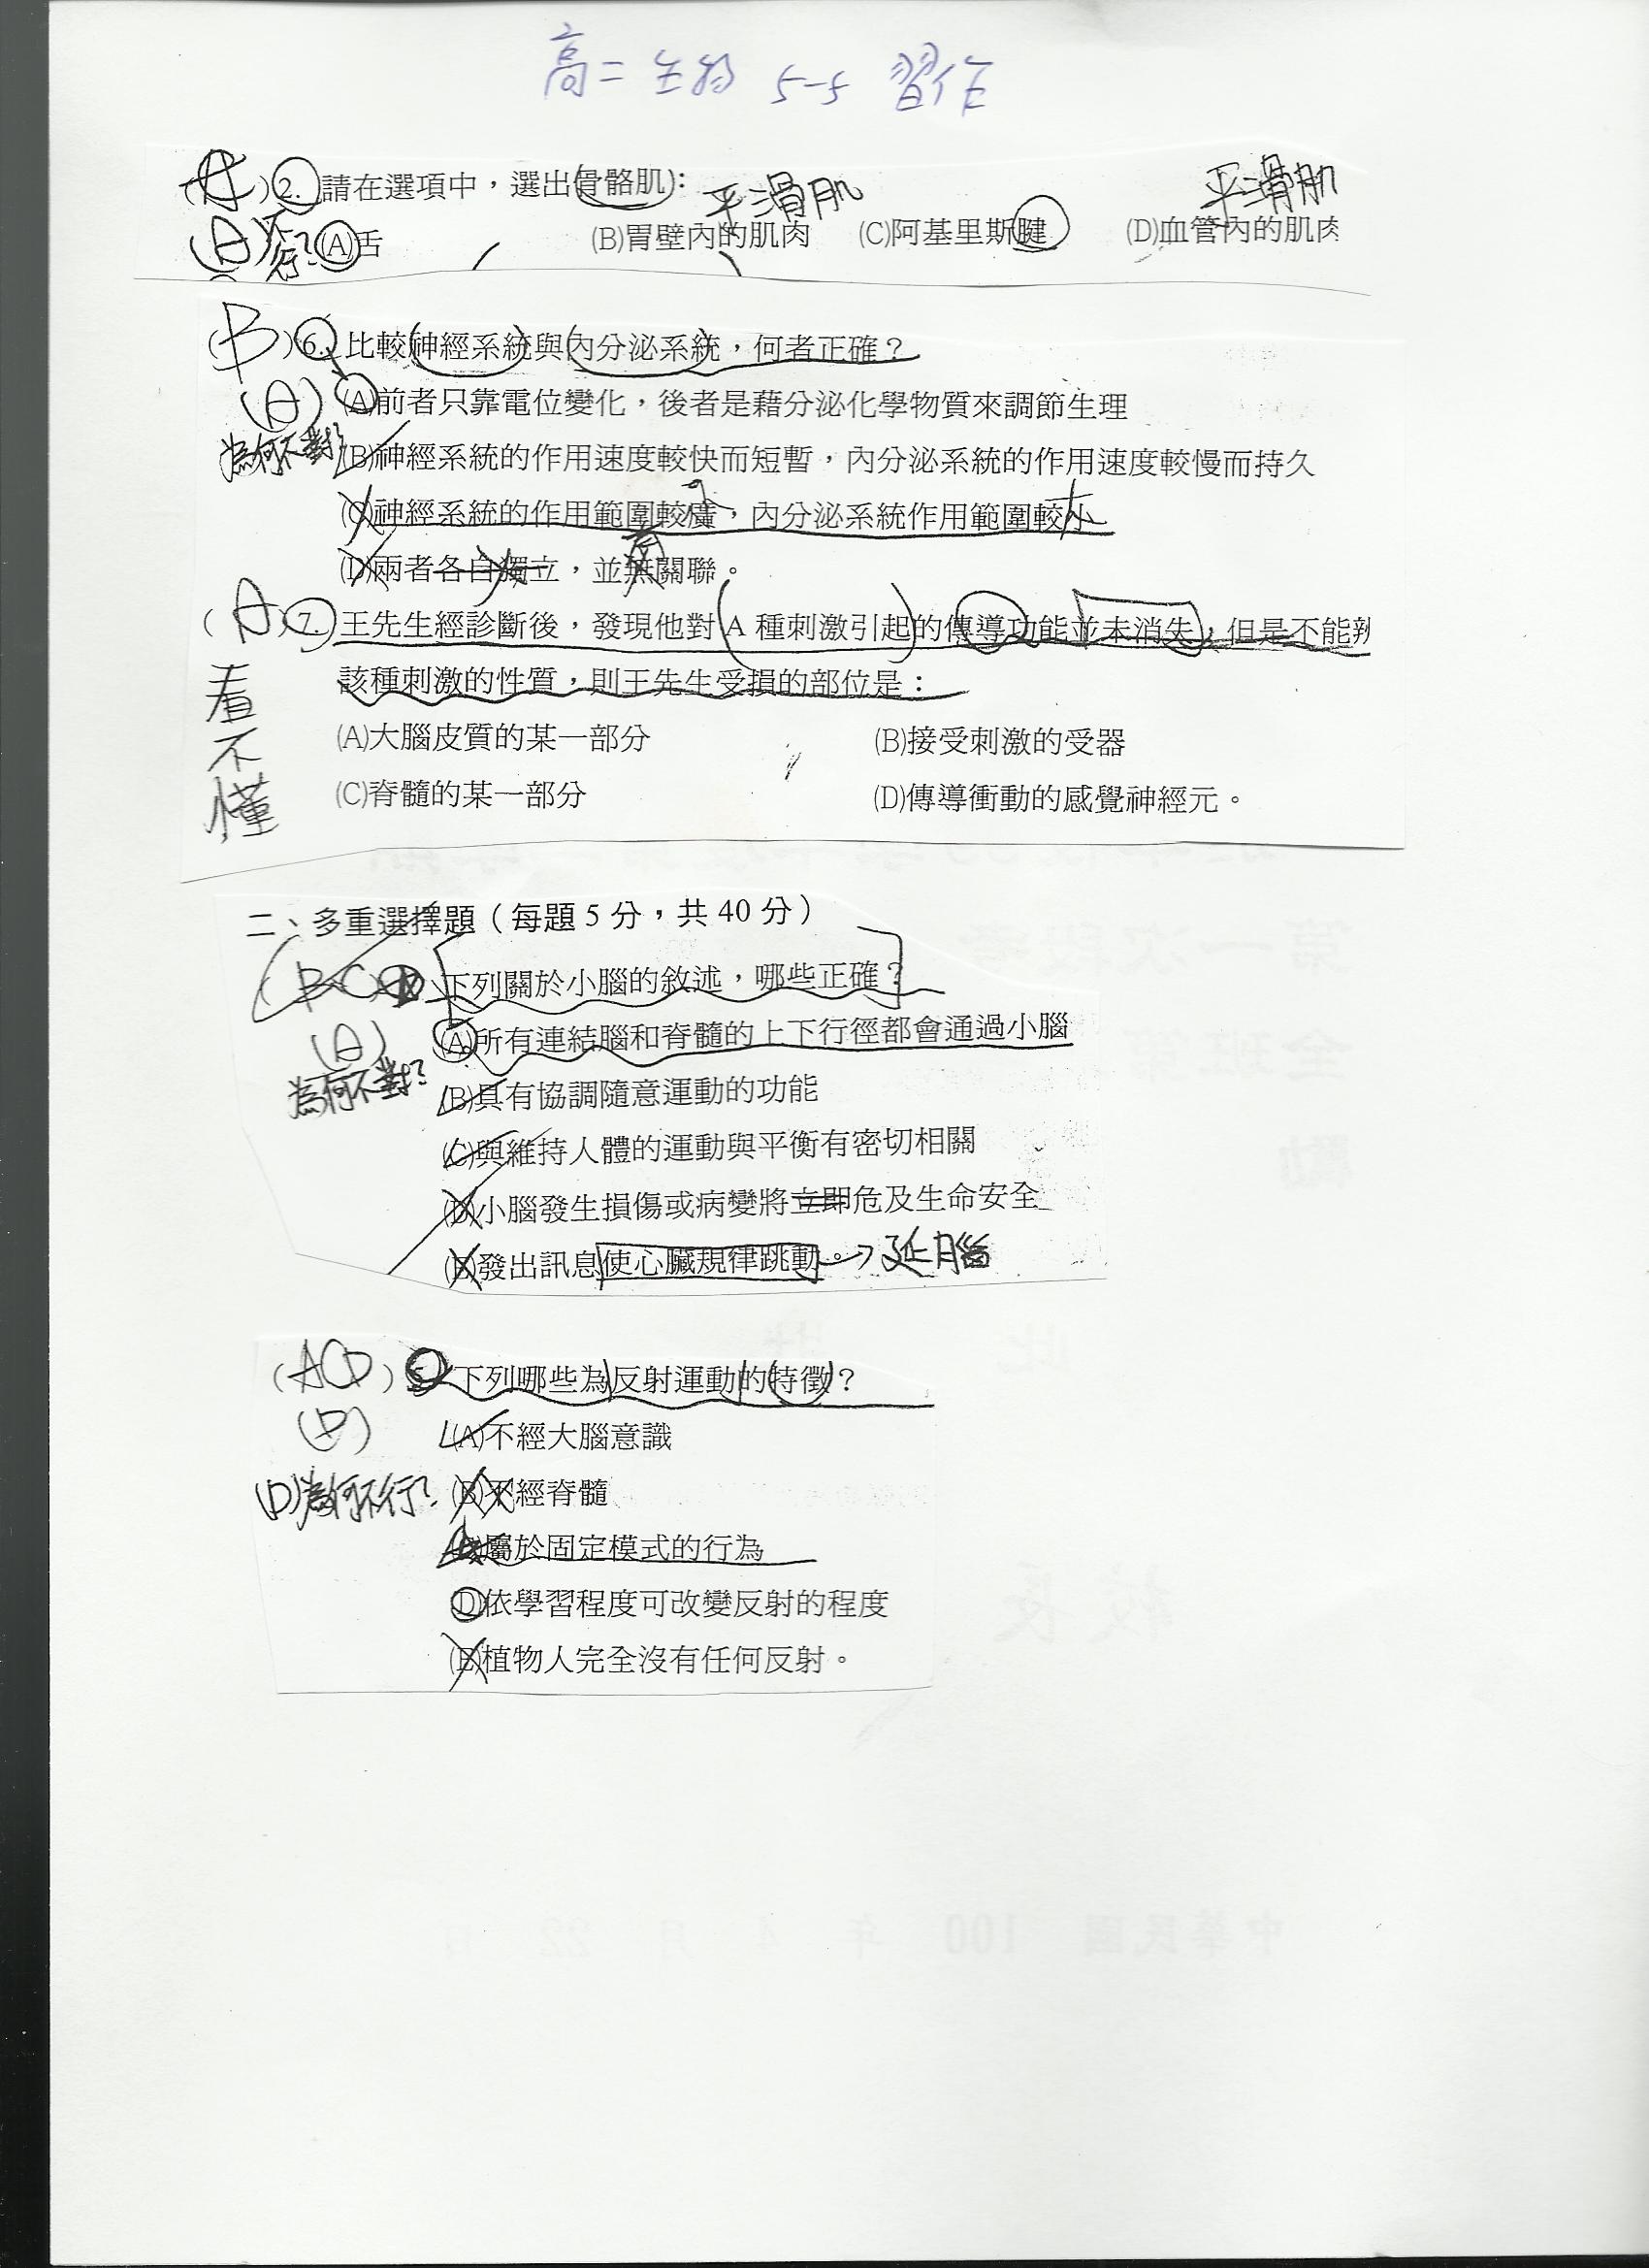 高二 生物 5-5 習作
(A) 2. 請在選項中，選出(骨骼肌)：
平滑肌
平滑肌
(A) 不行? (A)舌 (B)胃壁內的肌肉 (C)阿基里斯腱 (D)血管內的肌肉
(B) 6. 比較神經系統與內分泌系統，何者正確？
(A) (A)前者只靠電位變化，後者是藉分泌化學物質來調節生理
為何不對? (B)神經系統的作用速度較快而短暫，內分泌系統的作用速度較慢而持久
小 大
(C)神經系統的作用範圍較廣，內分泌系統作用範圍較小
有
(D)兩者各自獨立，並無關聯。
(A) 7. 王先生經診斷後，發現他對 A 種刺激引起的傳導功能並未消失，但是不能辨
該種刺激的性質，則王先生受損的部位是：
看不懂
(A)大腦皮質的某一部分 (B)接受刺激的受器
(C)脊髓的某一部分 (D)傳導衝動的感覺神經元。
二、多重選擇題（每題 5 分，共 40 分）
(BC) 下列關於小腦的敘述，哪些正確？
(A) (A)所有連結腦和脊髓的上下行徑都會通過小腦
為何不對? (B)具有協調隨意運動的功能
(C)與維持人體的運動與平衡有密切相關
(D)小腦發生損傷或病變將立即危及生命安全
(E)發出訊息使心臟規律跳動。→延腦
(ACD) 5. 下列哪些為反射運動的特徵？
(D) (A)不經大腦意識
(D)為何不行? (B)不經脊髓
(C)屬於固定模式的行為
(D)依學習程度可改變反射的程度
(E)植物人完全沒有任何反射。